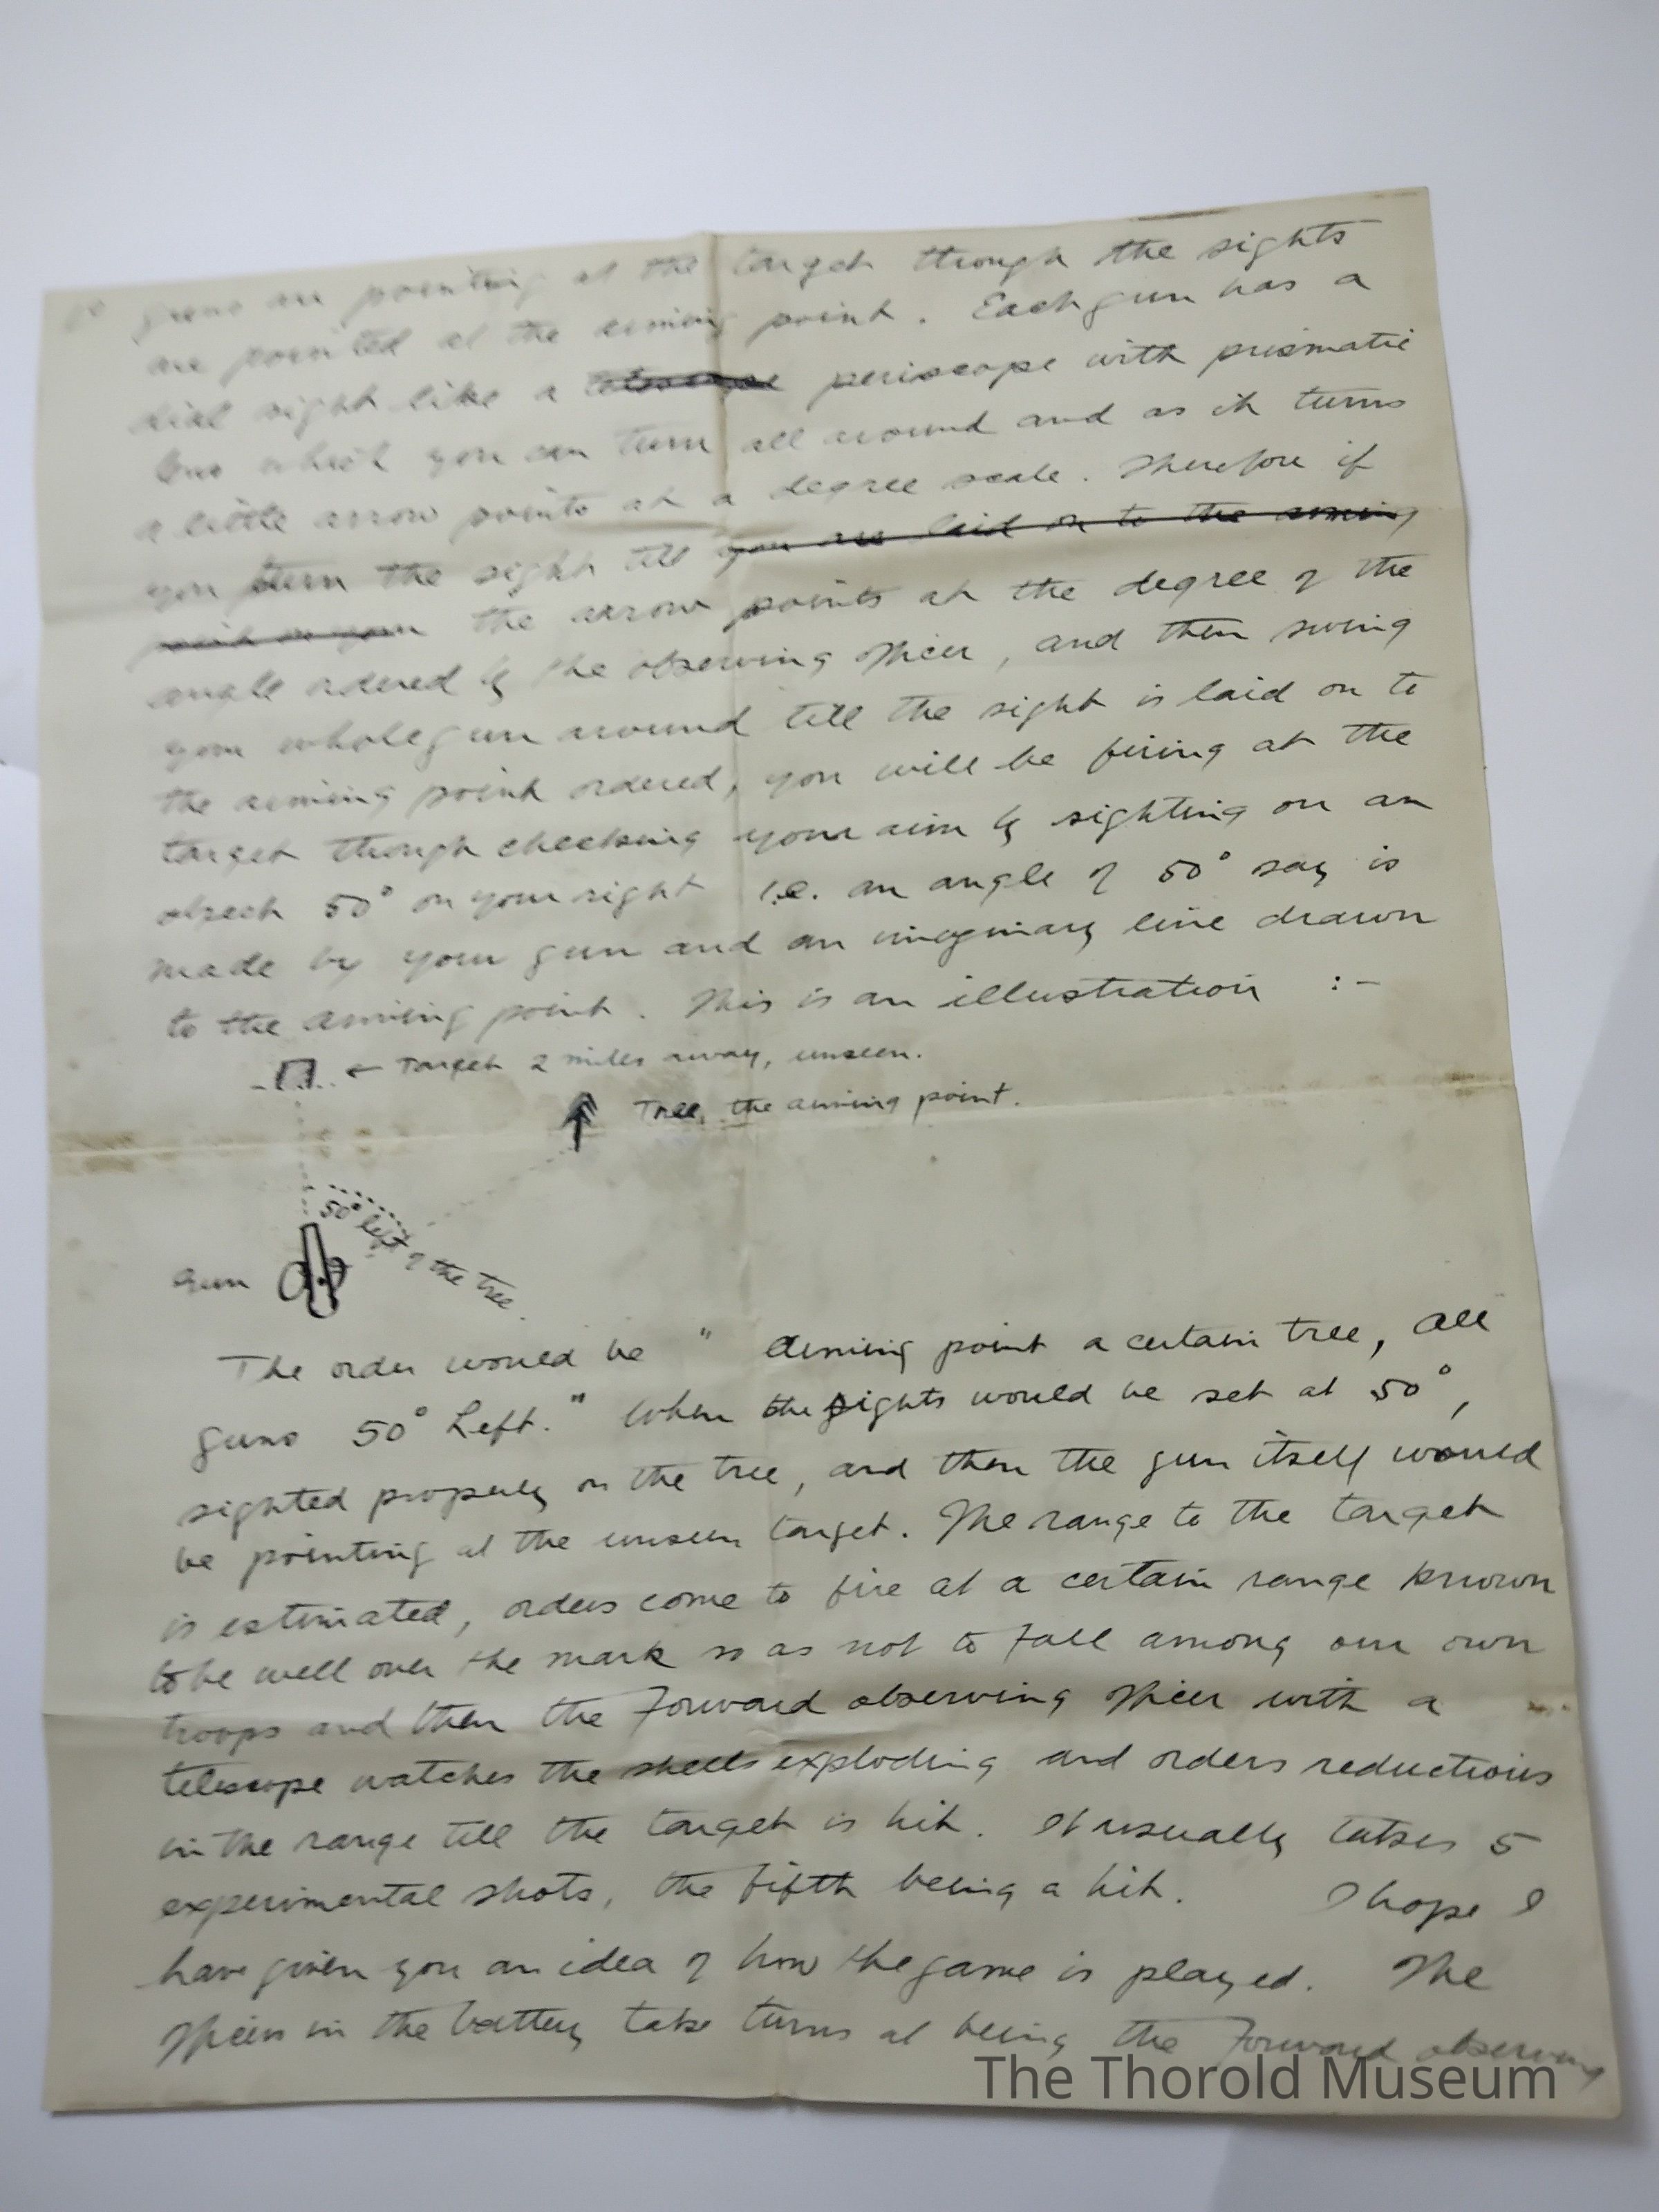 guns are pointing at the target though the sights
are pointed at the aiming point. Each gun has a
dial sight like a telescope periscope with prismatic
lens which you can turn all around and as it turns
a little arrow points at a degree scale. Therefore if
you turn the sight till you are laid on to the aiming
point on your the arrow points at the degree of the
angle ordered by the observing officer, and then swing
your whole gun around till the sight is laid on to
the aiming point ordered, you will be firing at the
target though checking your aim by sighting on an
object 50° on your right i.e. an angle of 50° say is
made by your gun and an imaginary line drawn
to the aiming point. This is an illustration :-
← Target 2 miles away, unseen.
Tree, the aiming point.
50° left of the tree.
Gun
The order would be " Aiming point a certain tree, all
guns 50° Left." When the sights would be set at 50°,
sighted properly on the tree, and then the gun itself would
be pointing at the unseen target. The range to the target
is estimated, orders come to fire at a certain range known
to be well over the mark so as not to fall among our own
troops and then the Forward observing officer with a
telescope watches the shells exploding and orders reductions
in the range till the target is hit. It usually takes 5
experimental shots, the fifth being a hit. I hope I
have given you an idea of how the game is played. The
officers in the battery take turns at being the Forward observing
The Thorold Museum